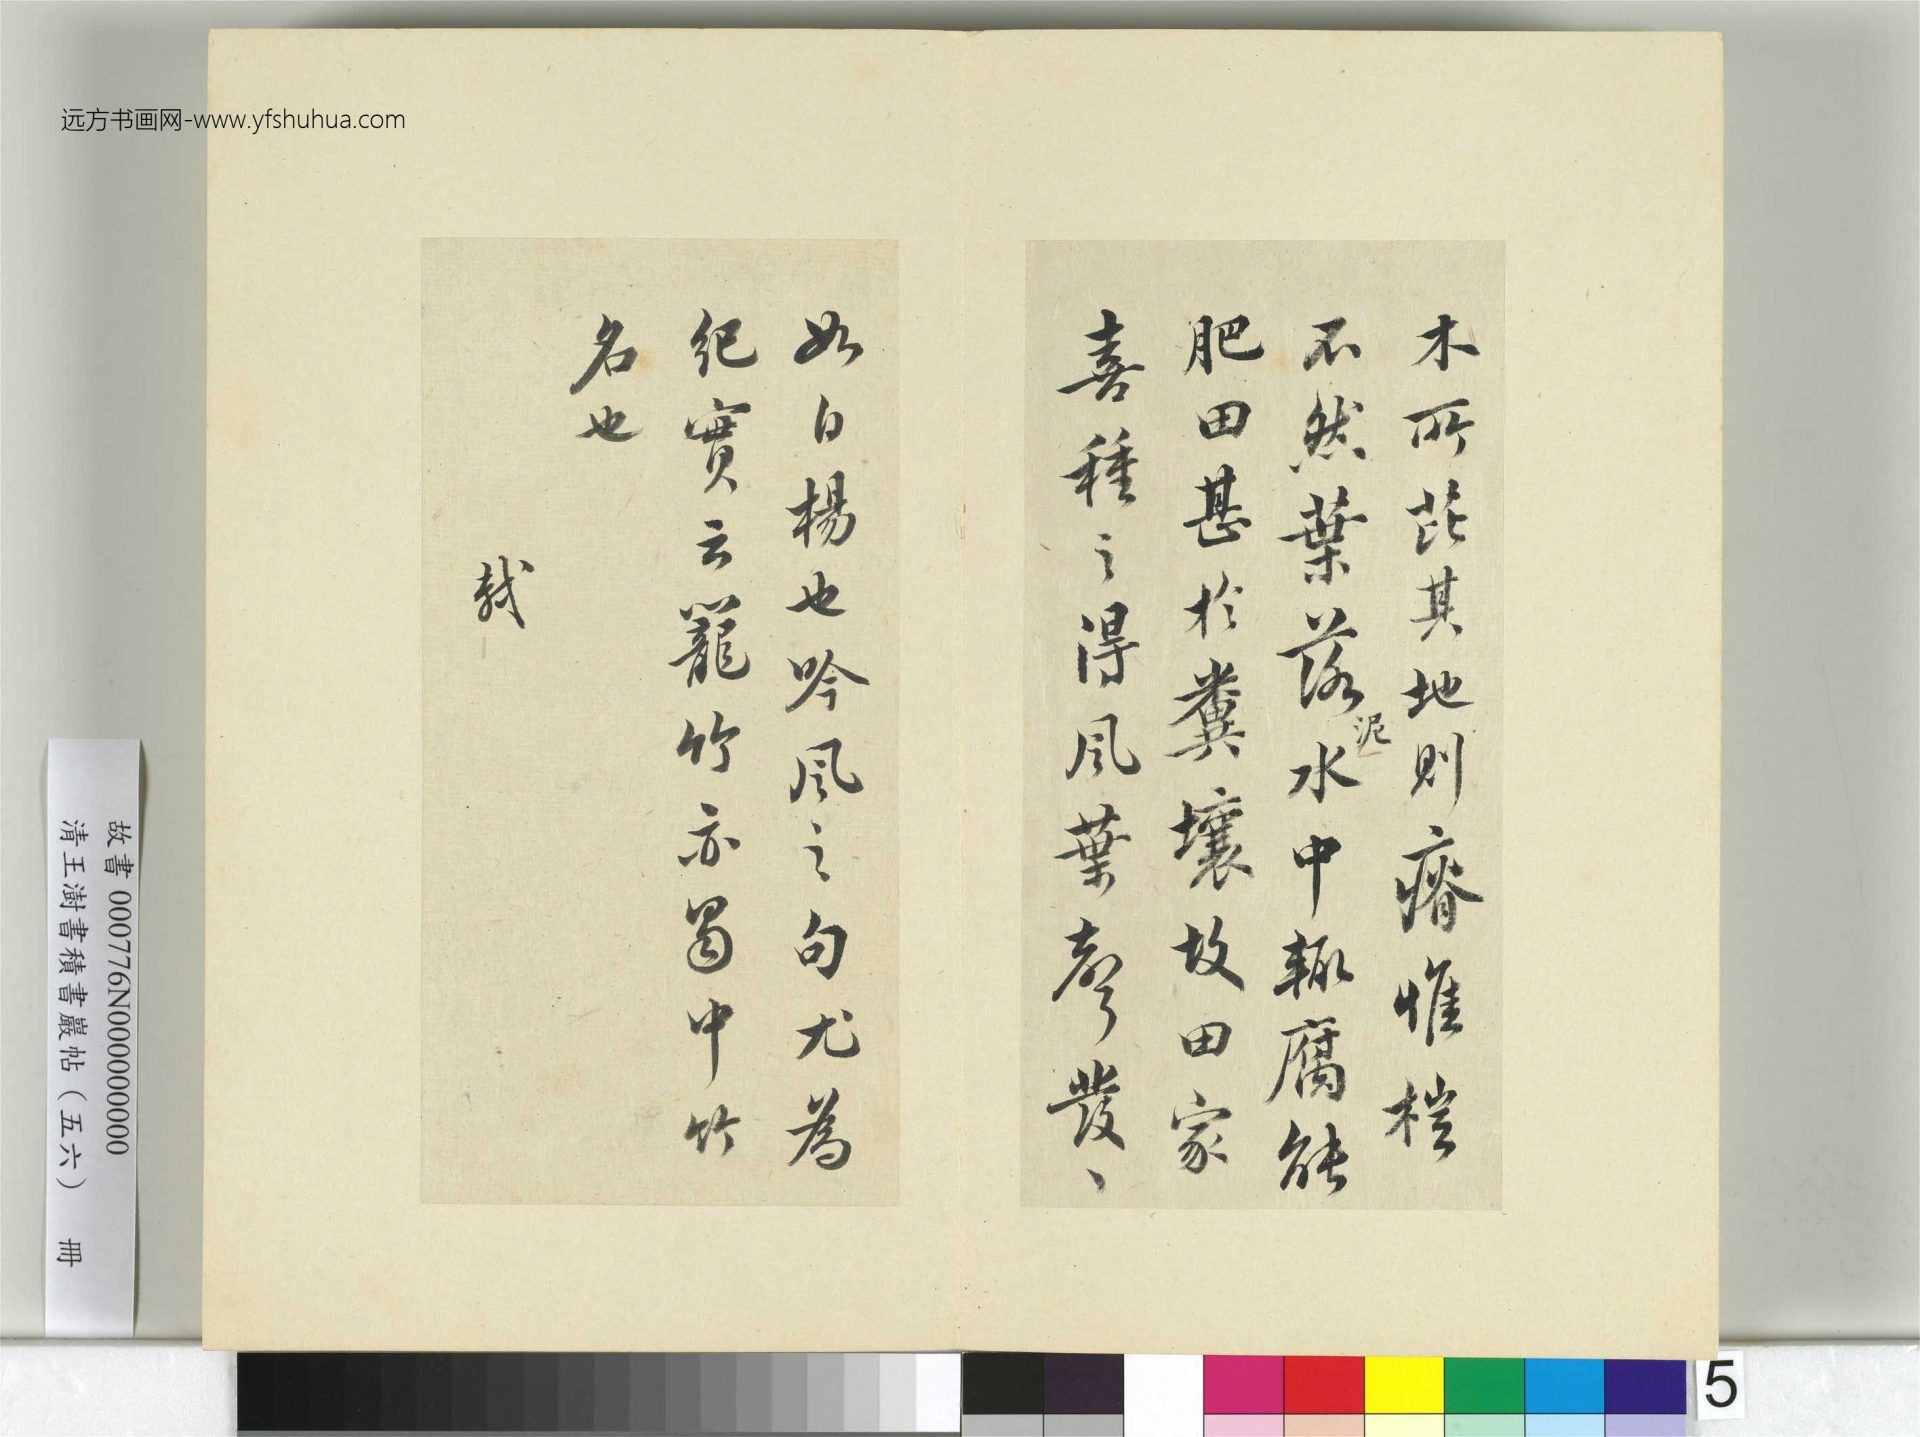 远方书画网-www.yfshuhua.com
木所芘其地則瘠惟榿
不然葉落泥水中輙腐能
肥田甚於糞壤故田家
喜種之得風葉聲發丶
如白楊也吟風之句尤為
紀實云籠竹亦蜀中竹
名也
軾
故書 000776N000000000
清王澍書積書巖帖（五六） 冊
5